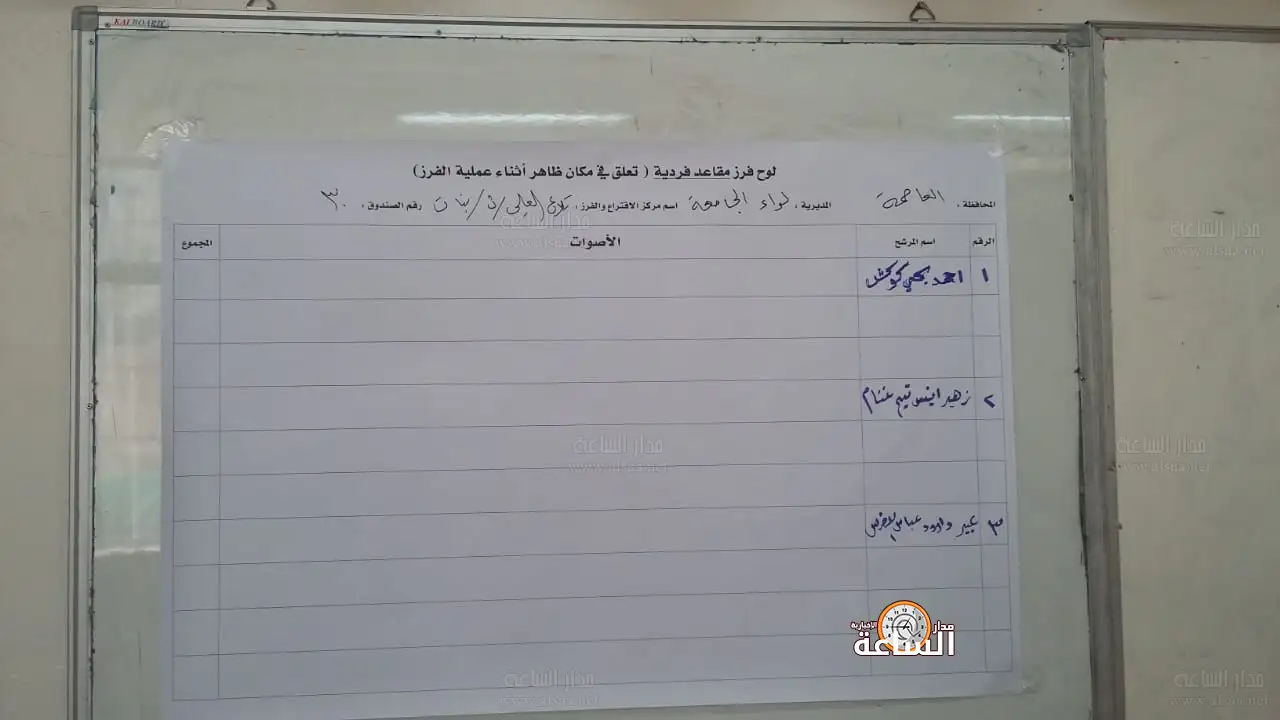 KAI BOARD
لوح فرز مقاعد فردية ( تعلق في مكان ظاهر أثناء عملية الفرز)
المحافظة ، العاصمة المديرية ، لواء الجامعة اسم مركز الاقتراع والفرز ، تلاع العلي / بنات رقم الصندوق ، ٣٠
الرقم اسم المرشح الأصوات المجموع
١ احمد يحيى كوكش
٢ زهير تيم غنام
٣ عبير داوود عباس الاخرس
مدار الساعة الاخبارية
مدار الساعة
www.alsaa.net